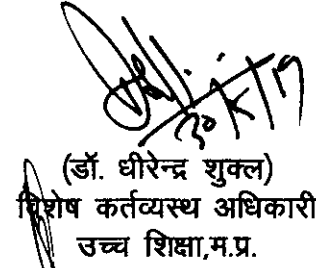 30/5/19
(डॉ. धीरेन्द्र शुक्ल)
विशेष कर्तव्यस्थ अधिकारी
उच्च शिक्षा,म.प्र.